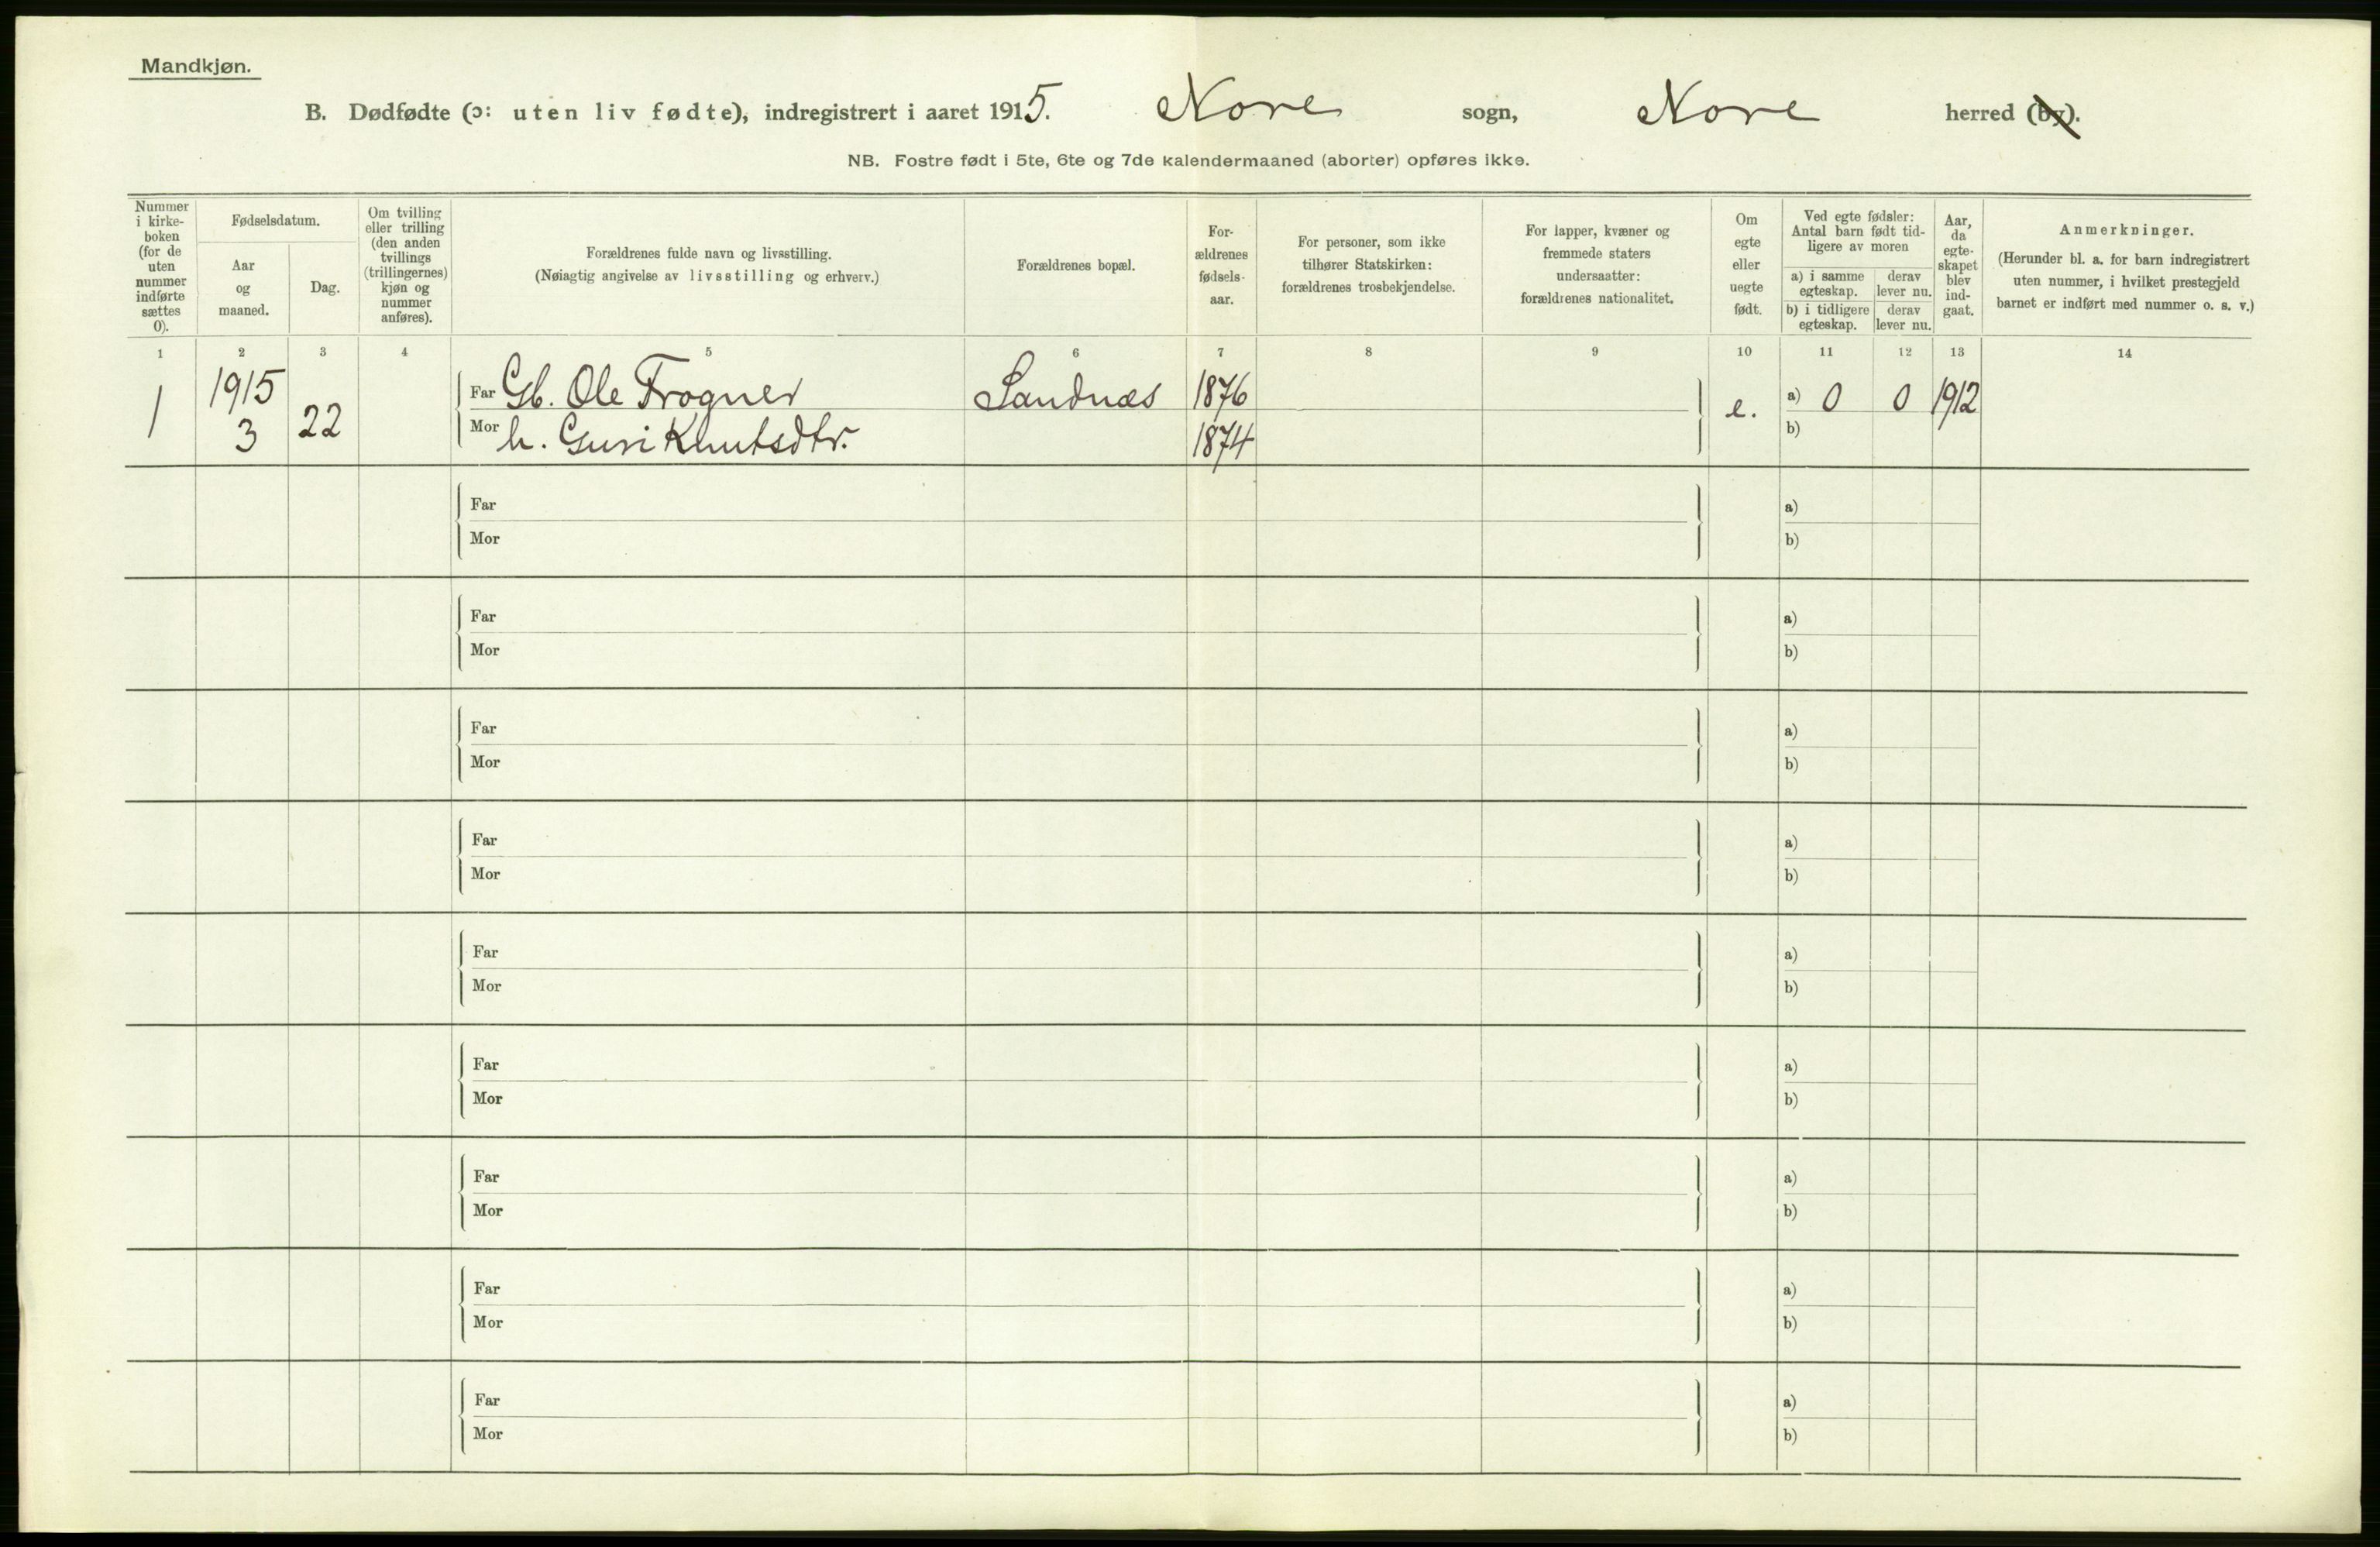 Mandkjøn.
B. Dødfødte (ɔ: uten liv fødte), indregistrert i aaret 1915. Nore sogn, Nore herred (by).
NB. Fostre født i 5te, 6te og 7de kalendermaaned (aborter) opføres ikke.
Nummer
i kirke-
boken
(for de
uten
nummer
indførte
sættes
0).
Fødselsdatum.
Aar
og
maaned.
Dag.
Om tvilling
eller trilling
(den anden
tvillings
(trillingernes)
kjøn og
nummer
anføres).
Forældrenes fulde navn og livsstilling.
(Nøiagtig angivelse av livsstilling og erhverv.)
Forældrenes bopæl.
For-
ældrenes
fødsels-
aar.
For personer, som ikke
tilhører Statskirken:
forældrenes trosbekjendelse.
For lapper, kvæner og
fremmede staters
undersaatter:
forældrenes nationalitet.
Om
egte
eller
uegte
født.
Ved egte fødsler:
Antal barn født tid-
ligere av moren
a) i samme
egteskap.
derav
lever nu.
b) i tidligere
egteskap.
derav
lever nu.
Aar,
da
egte-
skapet
blev
ind-
gaat.
Anmerkninger.
(Herunder bl. a. for barn indregistrert
uten nummer, i hvilket prestegjeld
barnet er indført med nummer o. s. v.)
1 2 3 4 5 6 7 8 9 10 11 12 13 14
1 1915 3 22
Far Gb. Ole Frogner Sandnæs 1876 e. a) 0 0 1912
Mor h. Guri Knutsdtr. 1874 b)
Far a)
Mor b)
Far a)
Mor b)
Far a)
Mor b)
Far a)
Mor b)
Far a)
Mor b)
Far a)
Mor b)
Far a)
Mor b)
Far a)
Mor b)
Far a)
Mor b)